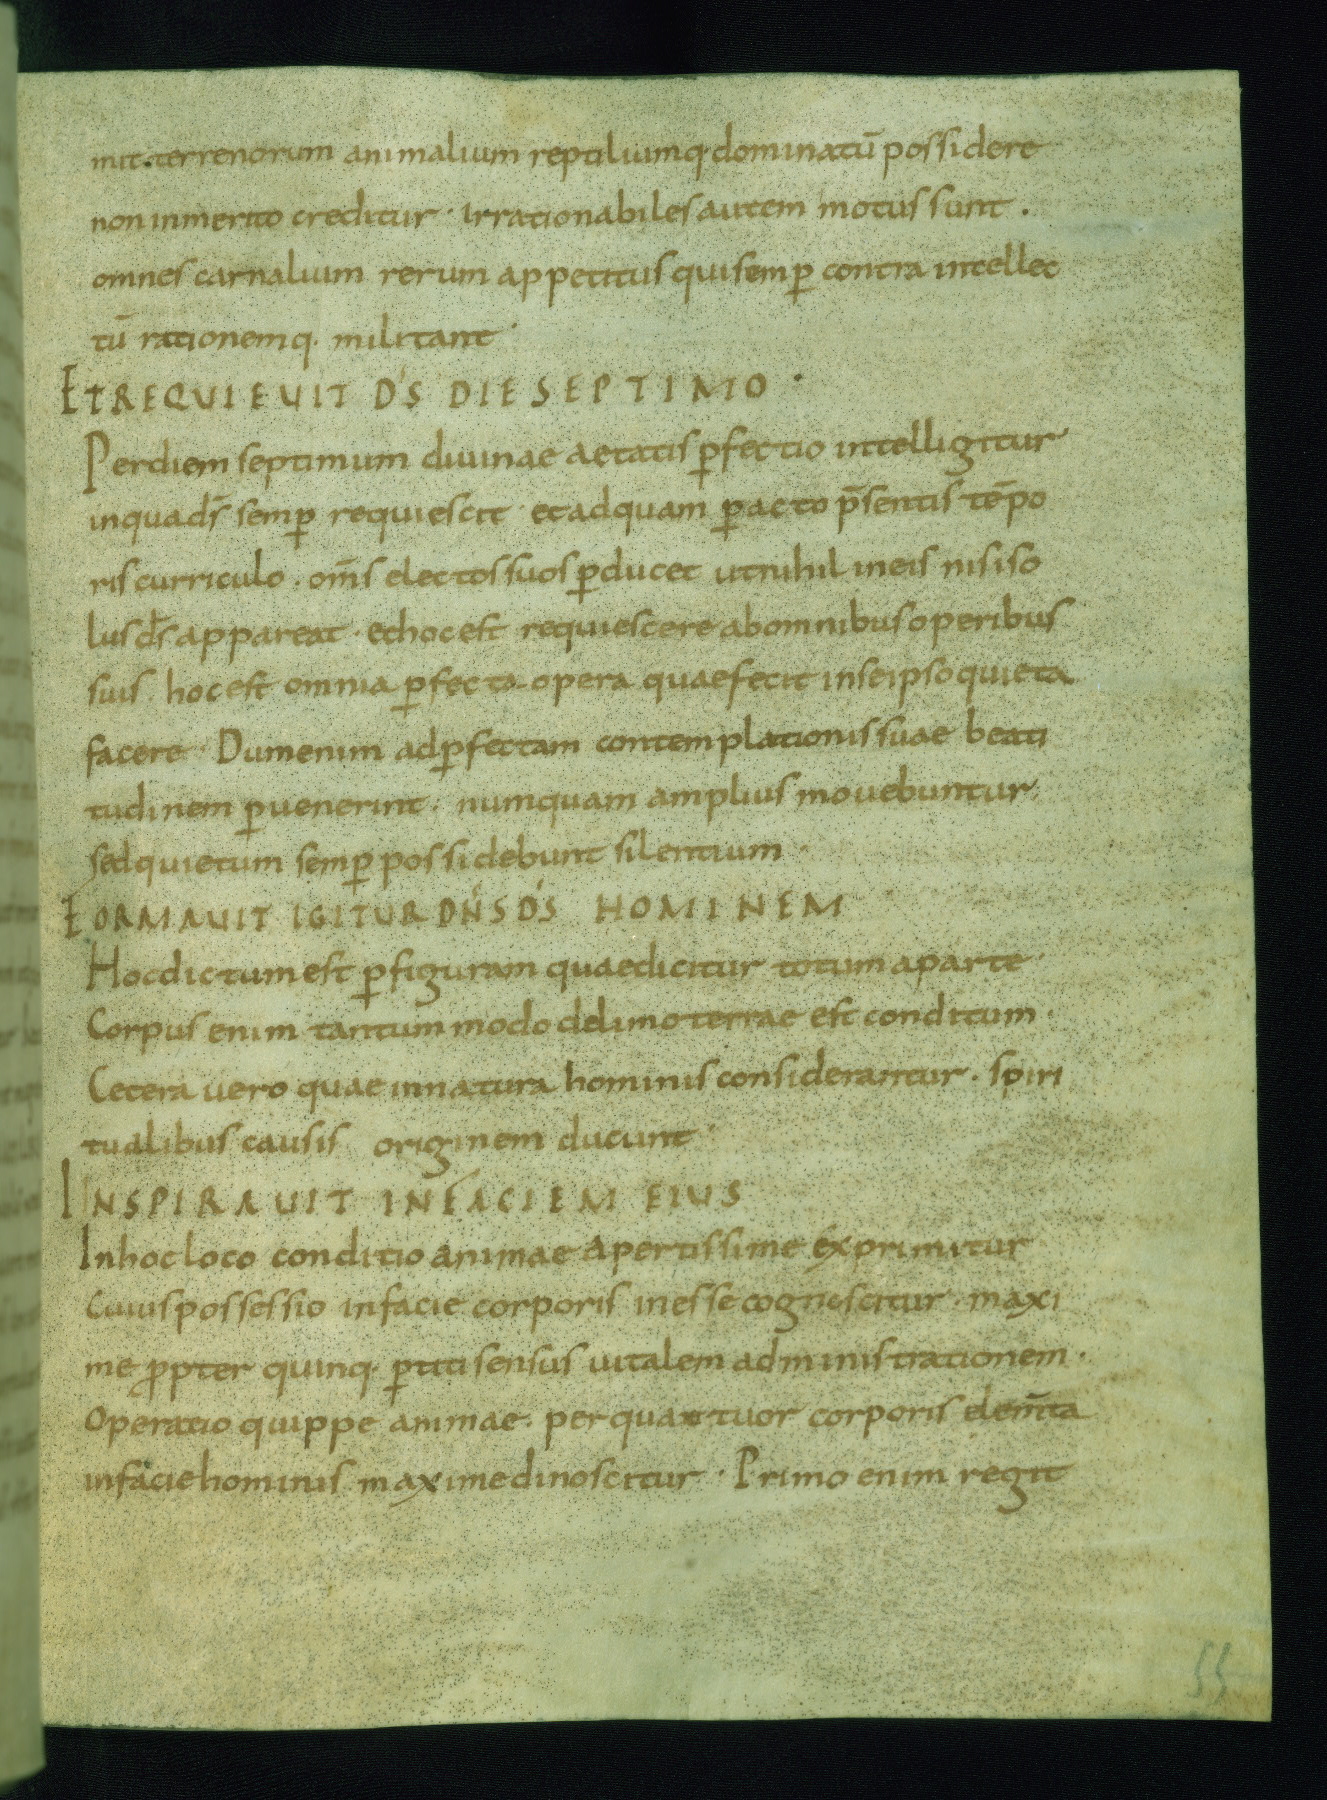 mit. terrenorum animalium reptiliumq· dominatū possidere
non inmerito creditur · irrationabiles autem motus sunt .
omnes carnalium rerum appetitus qui semꝑ contra intellec
tū rationemq· militant ·
ET REQUIEUIT DS̄ DIE SEPTIMO ·
Per diem septimum diuinae aetatis ꝑfectio intelligitur
in qua dS̄ semꝑ requiescit · et ad quam ꝑacto p̄sentis tēpo
ris curriculo . om̄s electos suos ꝑducet ut nihil in eis nisi so
lus dS̄ appareat · et hoc est requiescere ab omnibus operibus
suis . hoc est omnia ꝑfecta opera quae fecit in se ipso quieta
facere · Dum enim ad ꝑfectam contemplationis suae beati
tudinem ꝑuenerint · numquam amplius mouebuntur.
sed quietum semꝑ possidebunt silentium ·
FORMAUIT IGITUR DN̄S DS̄ HOMINEM
Hoc dictum est ꝑ figuram quae dicitur totum a parte ·
Corpus enim tantum modo de limo terrae est conditum ·
Cetera uero quae in natura hominis considerantur . spiri
tualibus causis originem ducunt ·
INSPIRAUIT IN FACIEM EIUS
In hoc loco conditio animae apertissime exprimitur
Cuius possessio in facie corporis inesse cognoscitur . maxi
me ꝓpter quinq· ꝑtiti sensus uitalem administrationem ·
Operatio quippe animae . per quattuor corporis elem̄ta
in facie hominis maxime dinoscitur · Primo enim regit
55